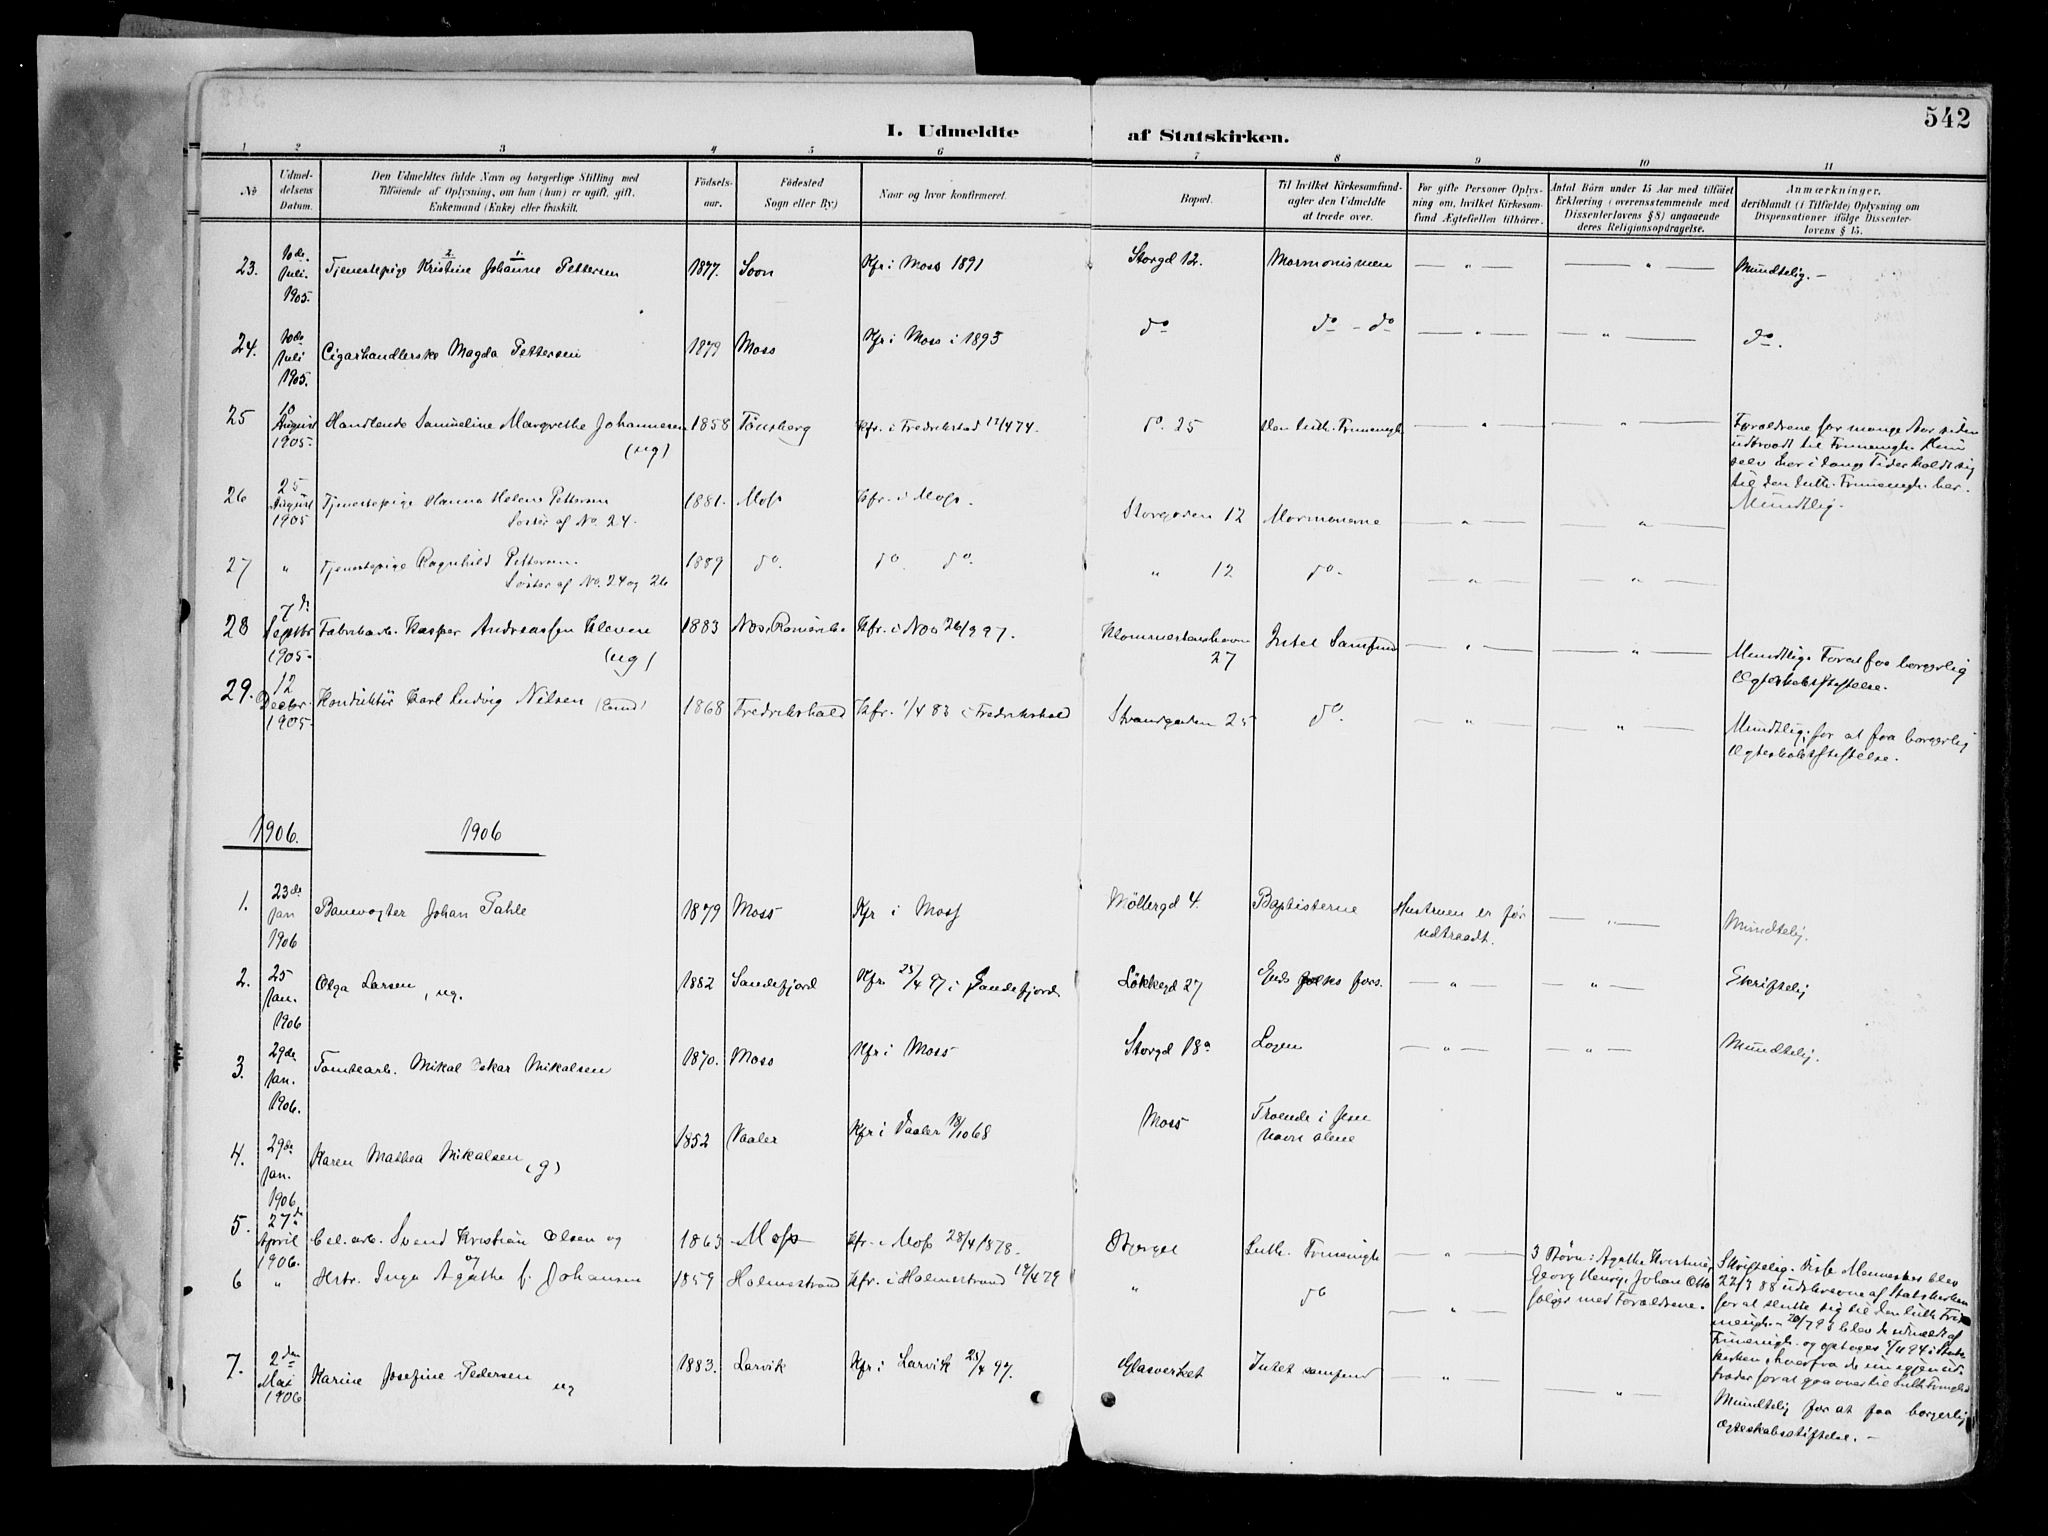 542
I. Udmeldte af Statskirken.
1 2 3 4 5 6 7 8 9 10 11
No
Udmeldelsens Datum.
Den Udmeldtes fulde Navn og borgerlige Stilling med
Tilføiende af Oplysning, om han (hun) er ugift, gift,
Enkemand (Enke) eller fraskilt.
Fødselsaar.
Fødested
Sogn eller By)
Naar og hvor konfirmeret.
Bopæl.
Til hvilket Kirkesamfund-
agter den Udmeldte
at træde over.
For gifte Personer Oplys-
ning om, hvilket Kirkesam-
fund Ægtefællen tilhører.
Antal Børn under 15 Aar med tilføiet
Erklæring (overensstemmende med
Dissenterlovens § 8) angaaende
deres Religionsopdragelse.
Anmærkninger,
deriblandt (i Tilfælde) Oplysning om
Dispensationer ifølge Dissenter-
lovens § 15.
23. 10de Juli 1905. Tjenestepige Kristine Johanne Pettersen 1877. Soon Kfr i Moss 1891 Storgd 12. Mormonismen — " — — " — Mundtelig. —
2. 1.
24. 10de Juli 1905. Cigarhandlerske Magda Pettersen 1879 Moss Kfr i Moss i 1893 do do - do — " — — " — do.
25 10 August 1905. Handlende Samueline Margrethe Johannesen (ug) 1858 Tönsberg Kfr. i Fredrikstad 474. do. 25 den luth. Frimenigh — " — — " —
Forældrene for mange Aar siden
udtraadt til Frimenigh. Hun
selv har i lange Tider holdt sig
til den luth. Frimenigh. her.
Mundtlig.
26 25 August 1905 Tjenestepige Hanna Helene Pettersen 1881. Moss Kfr. i Moss. Storgaden 12 Mormonerne — " — — " —
Søster af No. 24.
27 " Tjenestepige Ragnhild Pettersen. 1889 do. do do. " 12 do. — " — — " —
Søster af No. 24 og 26
28 7de Septbr 1905. Fabrikarb. Kasper Andreassen Kleven (ug) 1883 Nes, Romerike Kfr. i Nes 26/9 97. 27 Intet Samfund — " — — " —
Mundtlig. For at faa borgerlig
Ægteskabsstiftelse.
29. 12 Decbr. 1905. Konduktör Karl Ludvig Nilsen 1868 Fredrikshald Kfr. 1/4 83 i Fredrikshald Strandgaden 25 do. — " — — " —
Mundtlig; for at faa borgerlig
Ægteskabsstiftelse.
1906. 1906
1. 23de Jan 1906 Banevogter Johan Pahle 1879 Moss Kfr i Moss Möllergd 4. Baptisterne Hustruen er før udtraadt. — " — Mundtelig.
2. 25 Jan. 1906 Olga Larsen, ug. 1882 Sandefjord Kfr. 25/4 97 i Sandefjord Løkkegd 27 Guds folks fors. — " — — " — Skriftelig
3. 29de Jan. 1906. Tomtearb. Mikal Oskar Mikalsen 1870. Moss Kfr i Moss Storgd 18a Logen — " — — " — Mundtelig.
4. 29de Jan. 1906 Karen Mathea Mikalsen (g) 1852 Vaaler Kfr i Vaaler 18/10 68 Moss Troende i Jesu Navn alene
5. 27de April 1906. Cel. arb. Svend Kristian Olsen og 1863 Moss Kfr. i Moss 28/4 1878. Bjerget Luth. Frimenigh — " —
3 Børn: Agathe Kristine,
Georg Henry, Johan Otto
følger med Forældrene.
6 " Hstr. Inga Agathe f. Johansen 1859 Holmestrand Kfr. i Holmestrand 19/4 79 " do — " —
Skriftelig. Disse Mennesker blev
22/3 88 udskrevne af Statskirken
for at slutte sig til den luth. Fri-
menigh. — blev de udmeldt af
Frimenigh. og optoges 94 i Stats-
kirken, hvorfra de nu igjen ud-
træder for at gaa over til Luth. Frimenighed
7. 2den Mai 1906 Karine Josefine Pedersen ug 1883. Larvik Kfr i Larvik 25/4 97. Glasverket Intet samfund — " — — " —
Mundtelig for at faa borgerlig
Ægteskabsstiftelse. —